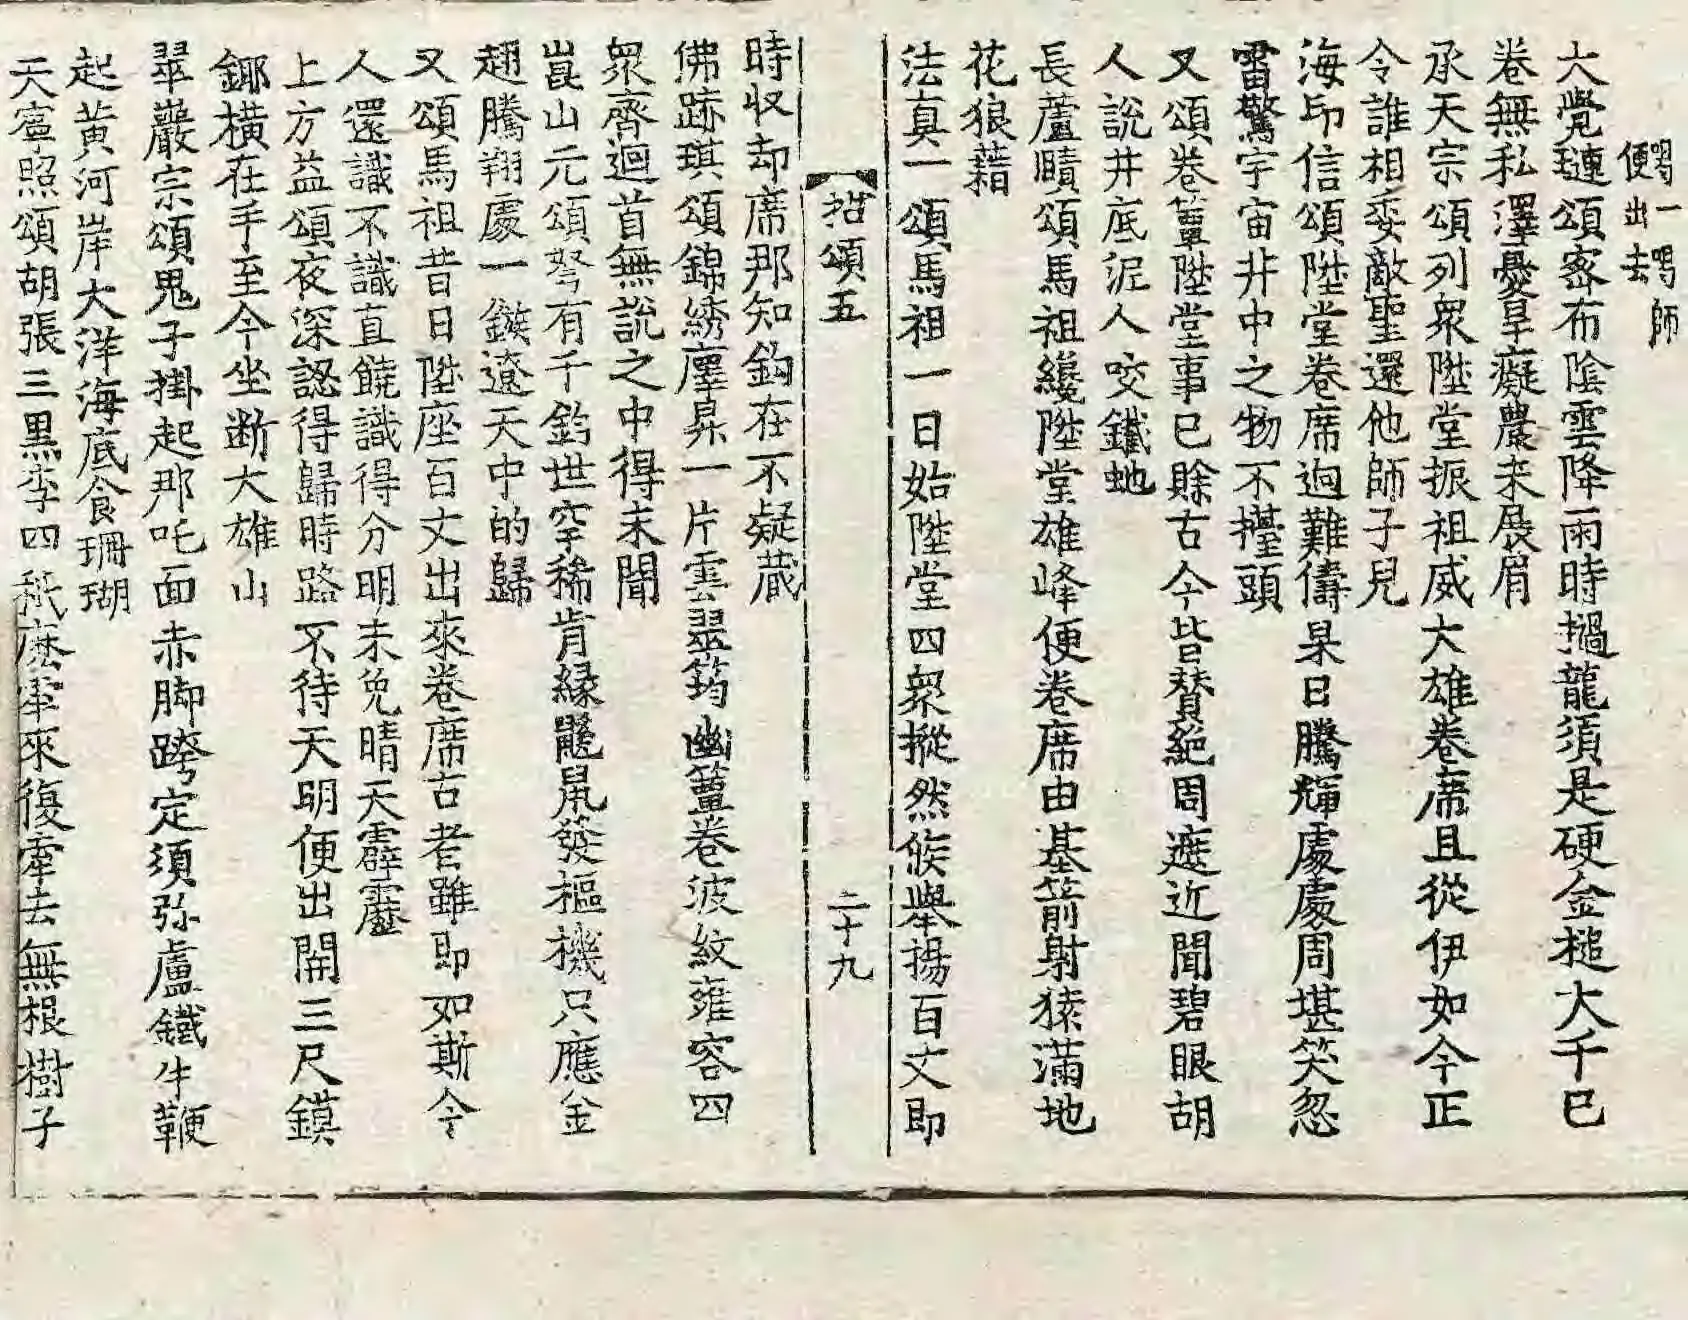 喝一喝師
便出去
大覺璉頌密布陰雲降雨時撾龍須是硬金槌大千已
卷無私澤憂旱癡農未展眉
承天宗頌列衆陞堂振祖威大雄卷席且從伊如今正
令誰相委敵聖還他師子兒
海印信頌陞堂卷席迥難儔杲日騰輝處處周堪笑忽
雷驚宇宙井中之物不擡頭
又頌卷簟陞堂事已賖古今皆賛絕周遮近聞碧眼胡
人說井底泥人咬鐵虵
長蘆賾頌馬祖纔陞堂雄峰便卷席由基箭射猿滿地
花狼藉
法真一頌馬祖一日始陞堂四衆摐然俟舉揚百丈即
拈頌五 二十九
時收却席那知鈎在不疑藏
佛跡琪頌錦綉㕓昇一片雲翠筠幽簟卷波紋雍容四
衆齊迴首無說之中得未聞
崑山元頌弩有千鈞世罕稀肯緣鼷鼠發樞機只應金
翅騰翔處一鏃遼天中的歸
又頌馬祖昔日陞座百丈出來卷席古者雖即如斯今
人還識不識直饒識得分明未免晴天霹靂
上方益頌夜深認得歸時路不待天明便出開三尺鏌
鎁橫在手至今坐断大雄山
翠巖宗頌鬼子掛起那吒面赤脚跨定須弥盧鐵牛鞭
起黃河岸大洋海底食珊瑚
天寧照頌胡張三黑李四秖麽牽來復牽去無根樹子